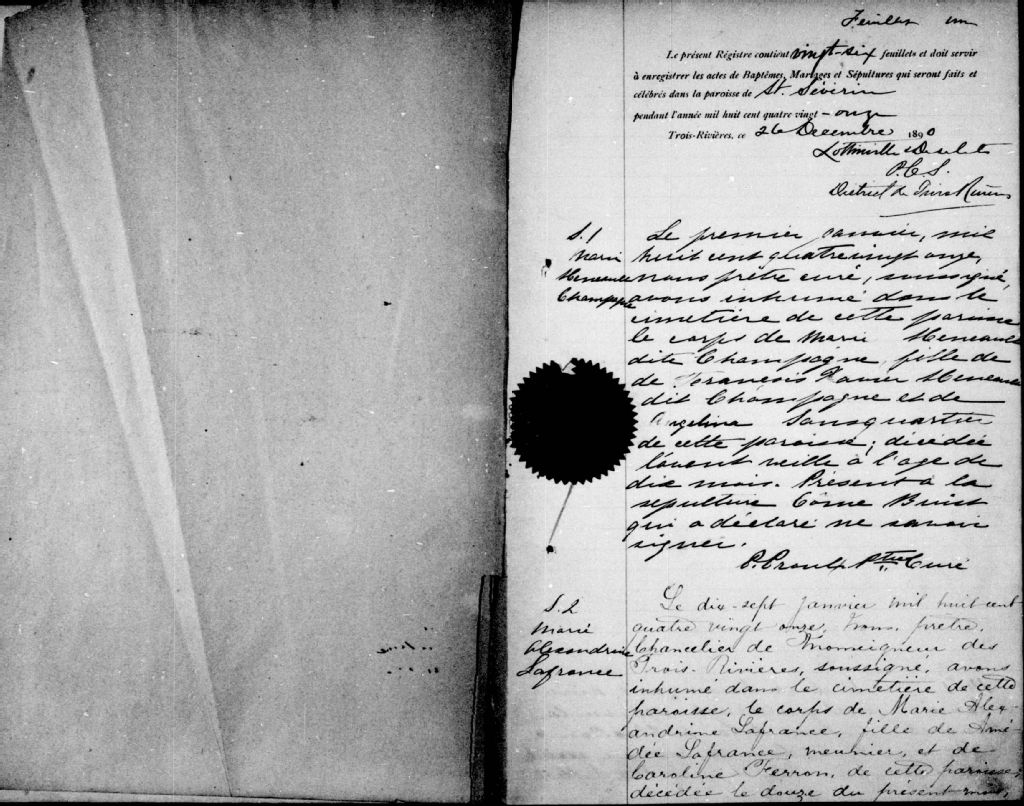 Feuillet un
Le présent Régistre contient vingt-six feuillets et doit servir
à enregistrer les actes de Baptêmes, Mariages et Sépultures qui seront faits et
célébrés dans la paroisse de St. Sévérin
pendant l'année mil huit cent quatre vingt-onze
Trois-Rivières, ce 26 Decembre 1890
Lottinville & Desilets
P.C.S.
District de Trois Rivieres
S. 1
Marie
Heneault
Champagne
Le premier janvier, mil
huit cent quatrevingt onze,
nous prêtre curé, soussigné,
avons inhumé dans le
cimetière de cette paroisse
le corps de Marie Heneault
dite Champagne, fille de
de Francois Xavier Heneault
dit Champagne et de
Angelina Sansquartier
de cette paroisse; décédée
l'avent veille à l'age de
dix mois. Présent à la
sépulture Côme
qui a déclaré ne savoir
signer.
P. Proulx Ptre Curé
S. 2
Marie
Alexandrine
Lafrance
Le dix-sept janvier mil huit cent
quatre vingt onze, Nous, prêtre,
Chancelier de Monseigneur des
Trois-Rivières, soussigné, avons
inhumé dans le cimetière de cette
paroisse, le corps de Marie Alex-
andrine Lafrance, fille de Amé-
dée Lafrance, meunier, et de
Caroline Ferron, de cette paroisse,
décédée le douze du présent mois,